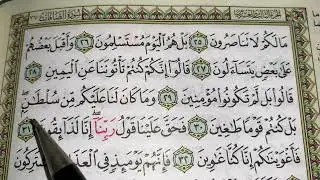 مَا لَكُمْ لَا تَنَاصَرُونَ ﴿٢٥﴾ بَلْ هُمُ الْيَوْمَ مُسْتَسْلِمُونَ ﴿٢٦﴾ وَأَقْبَلَ بَعْضُهُمْ
عَلَى بَعْضٍ يَتَسَاءَلُونَ ﴿٢٧﴾ قَالُوا إِنَّكُمْ كُنْتُمْ تَأْتُونَنَا عَنِ الْيَمِينِ ﴿٢٨﴾
قَالُوا بَلْ لَمْ تَكُونُوا مُؤْمِنِينَ ﴿٢٩﴾ وَمَا كَانَ لَنَا عَلَيْكُمْ مِنْ سُلْطَانٍ
بَلْ كُنْتُمْ قَوْمًا طَاغِينَ ﴿٣٠﴾ فَحَقَّ عَلَيْنَا قَوْلُ رَبِّنَا إِنَّا لَذَائِقُونَ ﴿٣١﴾
فَأَغْوَيْنَاكُمْ إِنَّا كُنَّا غَاوِينَ ﴿٣٢﴾ فَإِنَّهُمْ يَوْمَئِذٍ فِي الْعَذَابِ مُشْتَرِكُونَ